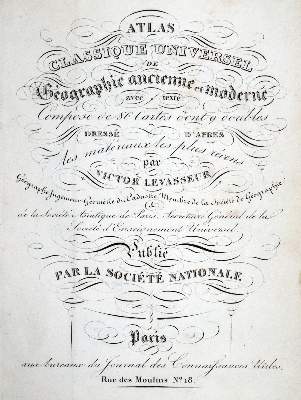 ATLAS
CLASSIQUE UNIVERSEL
DE
Géographie ancienne et moderne
avec texte
Composé de 80 Cartes dont 9 doubles
DRESSÉ D'APRÈS
les matériaux les plus récens
par
VICTOR LEVASSEUR,
Géographe Ingénieur Géomètre du Cadastre Membre de la Société de Géographie
de la Société Asiatique de Paris, Secrétaire Général de la
Société d'Enseignement Universel
Publié
PAR LA SOCIÉTÉ NATIONALE
Paris
aux bureaux du Journal des Connaissances Utiles,
Rue des Moulins Nº 18.